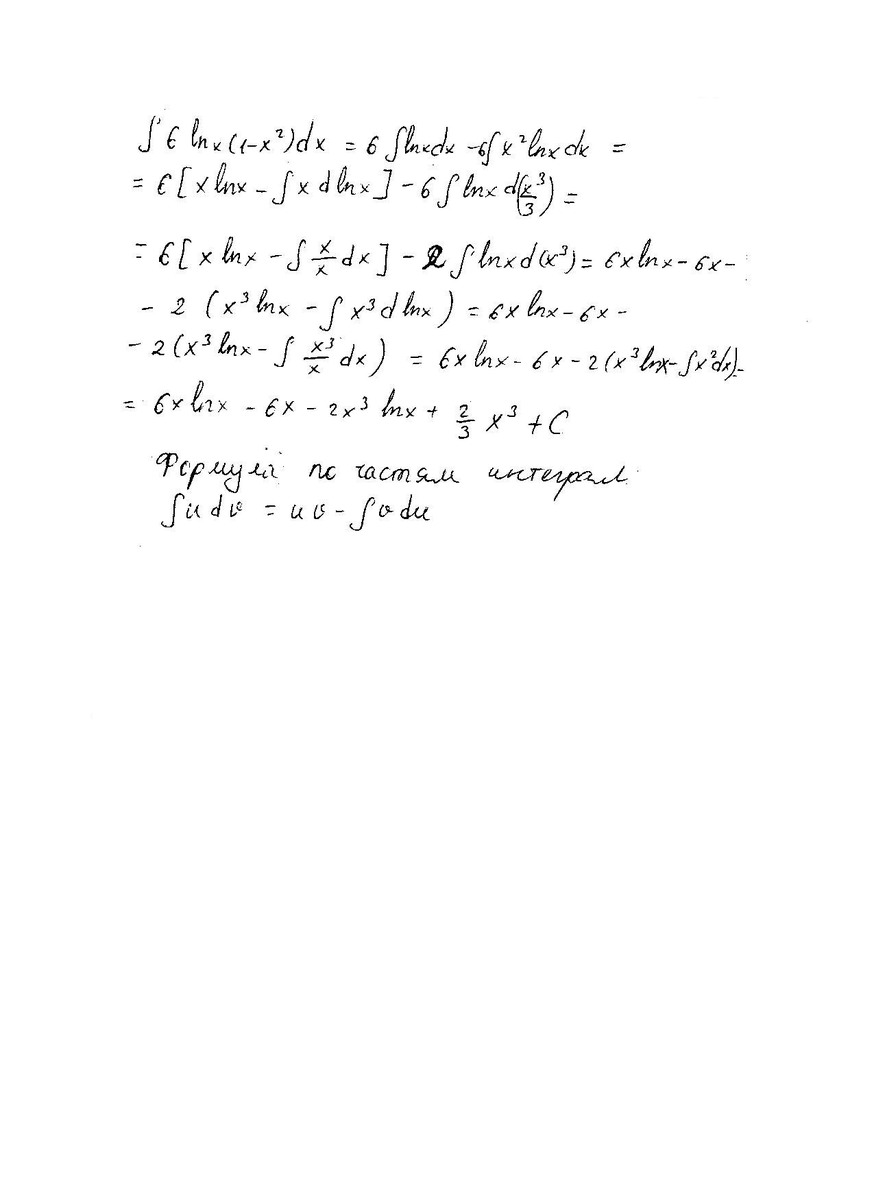 ∫ 6 lnx (1-x²)dx = 6 ∫lnxdx -6∫x²lnx dx =
= 6[x lnx - ∫ x d lnx] - 6 ∫ lnx d(x³/3) =
= 6[x lnx - ∫ x/x dx] - 2 ∫ lnx d(x³) = 6x lnx - 6x -
- 2 (x³ lnx - ∫ x³ d lnx) = 6x lnx - 6x -
- 2(x³ lnx - ∫ x³/x dx) = 6x lnx - 6x - 2(x³lnx-∫x²dx)=
= 6x lnx - 6x - 2x³ lnx + 2/3 x³ + C
по частям интеграл
∫u dv = uv - ∫v du